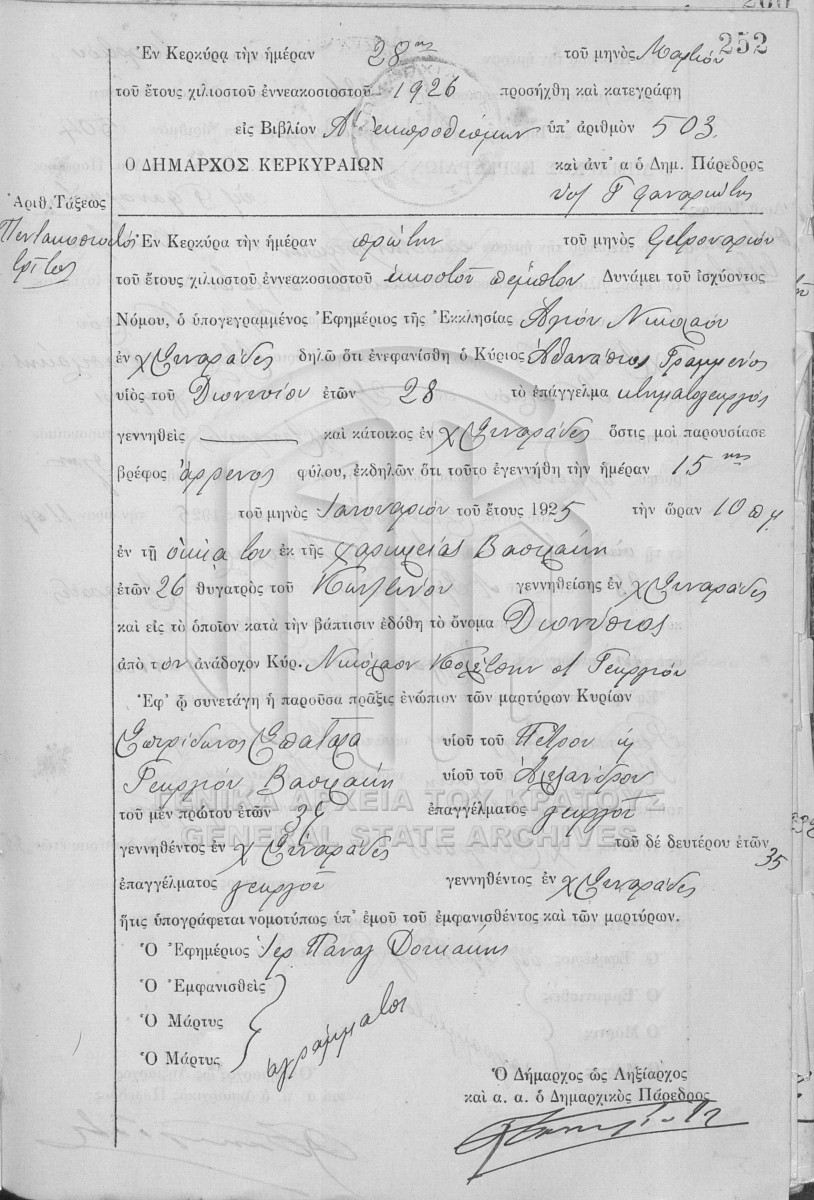 252
Ἐν Κερκύρᾳ τὴν ἡμέραν 28ης τοῦ μηνὸς Μαρτίου
τοῦ ἔτους χιλιοστοῦ ἐννεακοσιοστοῦ 1926 προσήχθη καὶ κατεγράφη
εἰς Βιβλίον Α ἐκπροθέσμων ὑπ' ἀριθμὸν 503.
Ο ΔΗΜΑΡΧΟΣ ΚΕΡΚΥΡΑΙΩΝ καὶ ἀντ' α ὁ Δημ. Πάρεδρος
Ἀριθ. Τάξεως
Πεντακοσιοστός
τρίτος
Ἐν Κερκύρᾳ τὴν ἡμέραν πρώτην τοῦ μηνὸς Φεβρουαρίου
τοῦ ἔτους χιλιοστοῦ ἐννεακοσιοστοῦ εἰκοστοῦ πέμπτου Δυνάμει τοῦ ἰσχύοντος
Νόμου, ὁ ὑπογεγραμμένος Ἐφημέριος τῆς Ἐκκλησίας Ἁγίου Νικολάου
ἐν χ Σιναράδες δηλῶ ὅτι ἐνεφανίσθη ὁ Κύριος Ἀθανάσιος Γραμμένος
υἱὸς τοῦ Διονυσίου ἐτῶν 28 τὸ ἐπάγγελμα κτηματογεωργός
γεννηθεὶς καὶ κάτοικος ἐν χ Σιναράδες ὅστις μοὶ παρουσίασε
βρέφος ἄρρενος φύλου, ἐκδηλῶν ὅτι τοῦτο ἐγεννήθη τὴν ἡμέραν 15ην
τοῦ μηνὸς Ἰανουαρίου τοῦ ἔτους 1925 τὴν ὥραν 10 π.μ.
ἐν τῇ οἰκίᾳ του ἐκ τῆς Χαρικλείας Βασιλάκη
ἐτῶν 26 θυγατρὸς τοῦ Κων/τίνου γεννηθείσης ἐν χ Σιναράδες
καὶ εἰς τὸ ὁποῖον κατὰ τὴν βάπτισιν ἐδόθη τὸ ὄνομα Διονύσιος
ἀπὸ τὸν ἀνάδοχον Κύρ. Νικόλαον Γεωργίου
Ἐφ' ᾧ συνετάγη ἡ παροῦσα πρᾶξις ἐνώπιον τῶν μαρτύρων Κυρίων
Σπυρίδωνος Σπάταρα υἱοῦ τοῦ Πέτρου ἢ
Γεωργίου Βασιλάκη υἱοῦ τοῦ Ἀλεξάνδρου
τοῦ μὲν πρώτου ἐτῶν ἐπαγγέλματος γεωργοῦ
γεννηθέντος ἐν χ Σιναράδες τοῦ δὲ δευτέρου ἐτῶν 35
ἐπαγγέλματος γεωργοῦ γεννηθέντος ἐν χ Σιναράδες
ἥτις ὑπογράφεται νομοτύπως ὑπ' ἐμοῦ τοῦ ἐμφανισθέντος καὶ τῶν μαρτύρων.
Ὁ Ἐφημέριος Ἱερ Παναγ
Ὁ Ἐμφανισθεὶς
Ὁ Μάρτυς ἀγράμματοι
Ὁ Μάρτυς
Ὁ Δήμαρχος ὡς Ληξίαρχος
καὶ α. α. ὁ Δημαρχικὸς Πάρεδρος
ΓΕΝΙΚΑ ΑΡΧΕΙΑ ΤΟΥ ΚΡΑΤΟΥΣ
GENERAL STATE ARCHIVES